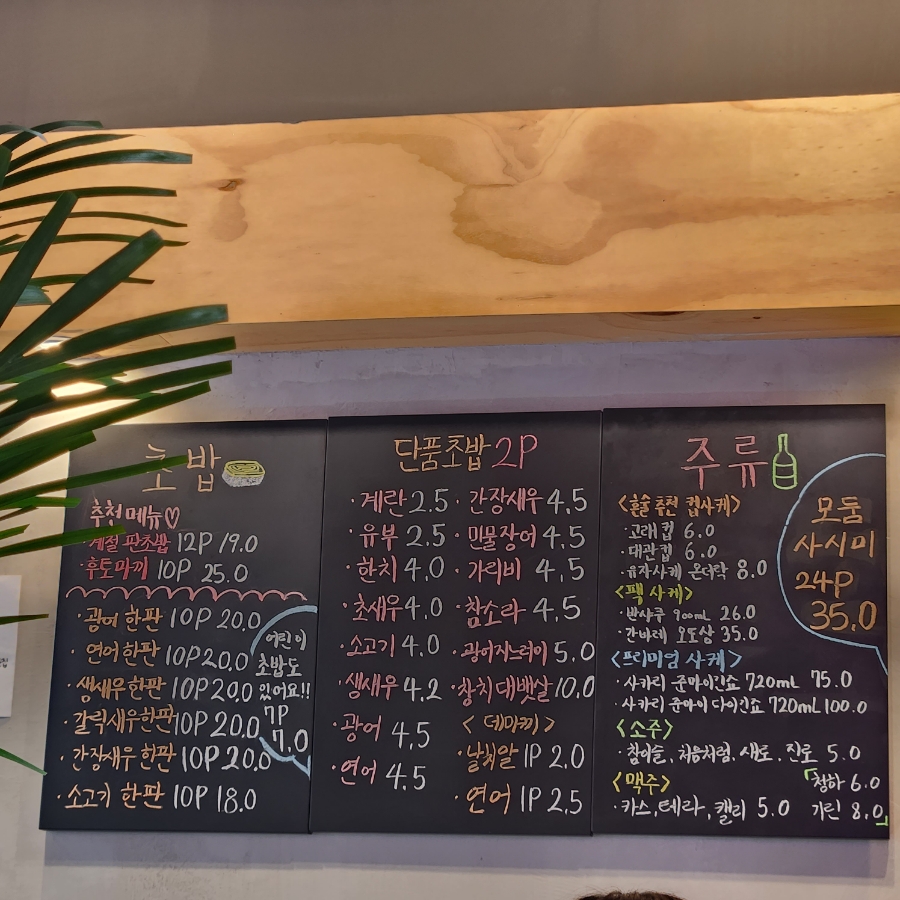 초밥
추천메뉴♡
계절 판초밥 12P 19.0
·후토마끼 10P 25.0
·광어 한판 10P 20.0
·연어 한판 10P 20.0
·생새우한판 10P 20.0
·갈릭새우한판 10P 20.0
·간장새우 한판 10P 20.0
·소고기 한판 10P 18.0
어린이
초밥도
있어요!!
7P
7.0
단품초밥 2P
·계란 2.5
·유부 2.5
·한치 4.0
·초새우 4.0
·소고기 4.0
·생새우 4.2
·광어 4.5
·연어 4.5
·간장새우 4.5
·민물장어 4.5
·가리비 4.5
·참소라 4.5
·광어지느러미 5.0
·참치대뱃살 10.0
<데마끼>
·날치알 1P 2.0
·연어 1P 2.5
주류
<혼술 추천 컵사케>
·고래컵 6.0
·대관컵 6.0
·유자사케 온더락 8.0
<팩 사케>
·반샤쿠 900mL 26.0
·간바레 오또상 35.0
<프리미엄 사케>
·사카리 준마이긴죠 720mL 75.0
·사카리 준마이 다이긴죠 720mL 100.0
<소주>
·참이슬, 처음처럼, 새로, 진로 5.0
<맥주>
·카스, 테라, 켈리 5.0
「청하 6.0
기린 8.0」
모둠
사시미
24P
35.0